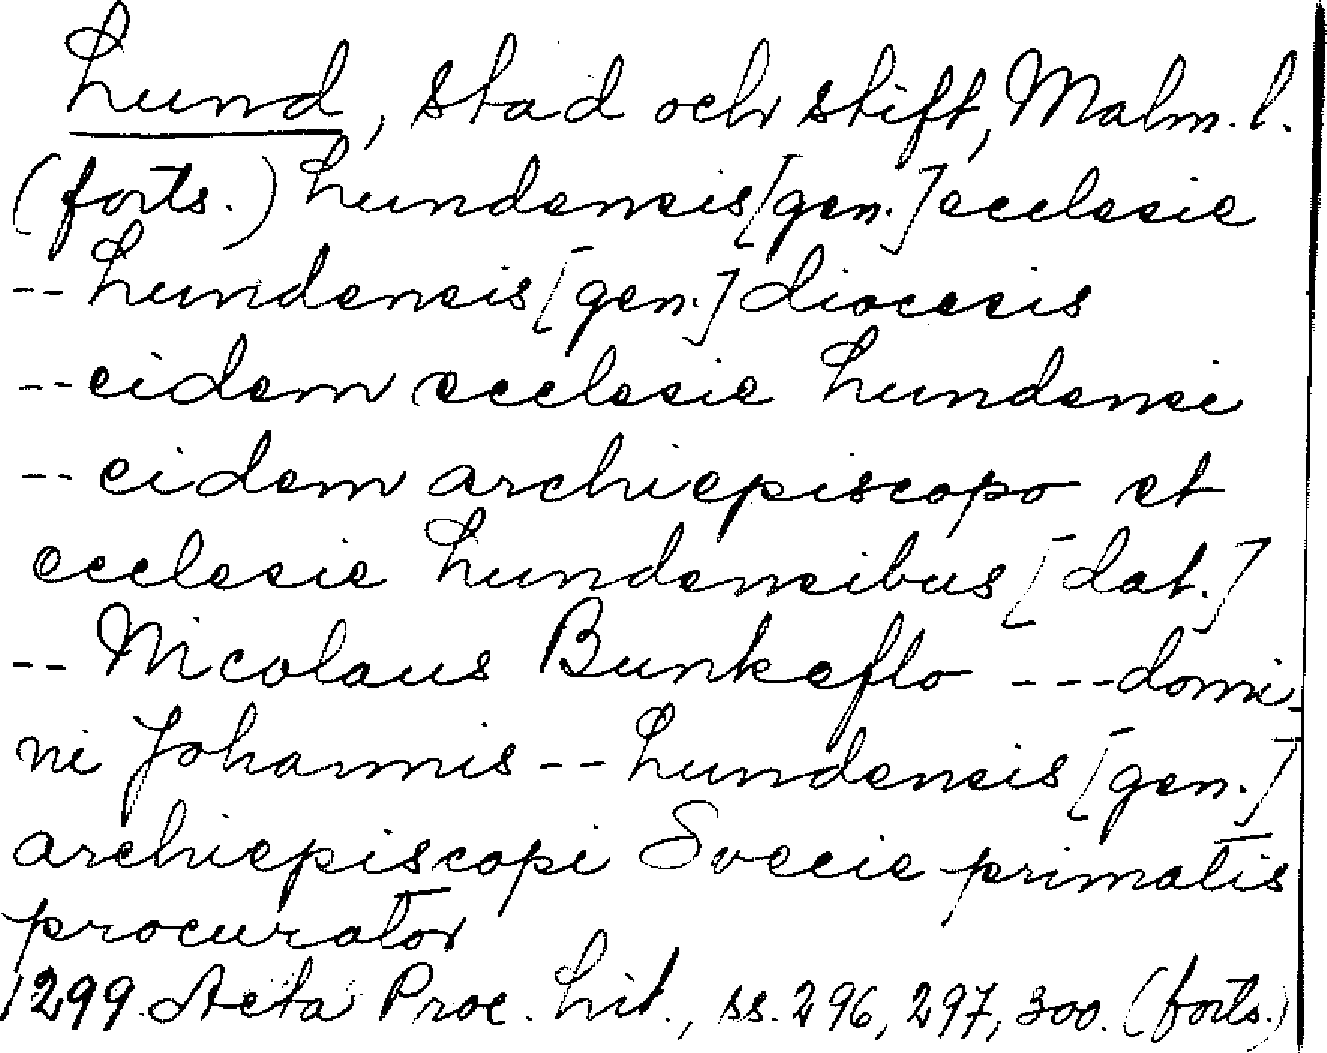 Lund, stad och stift, Malm. l.
(forts.) Lundensis [gen.] ecclesie
-- Lundensis [gen.] diocesis
-- eidem ecclesie Lundensi
-- eidem archiepiscopo et
ecclesie Lundensibus [dat.]
-- Nicolaus Bunkeflo --- domi-
ni Johannis -- Lundensis [gen.]
archiepiscopi Svecie primatis
procurator
1299. Acta Proc. Lit., ss. 296, 297, 300. (forts.)